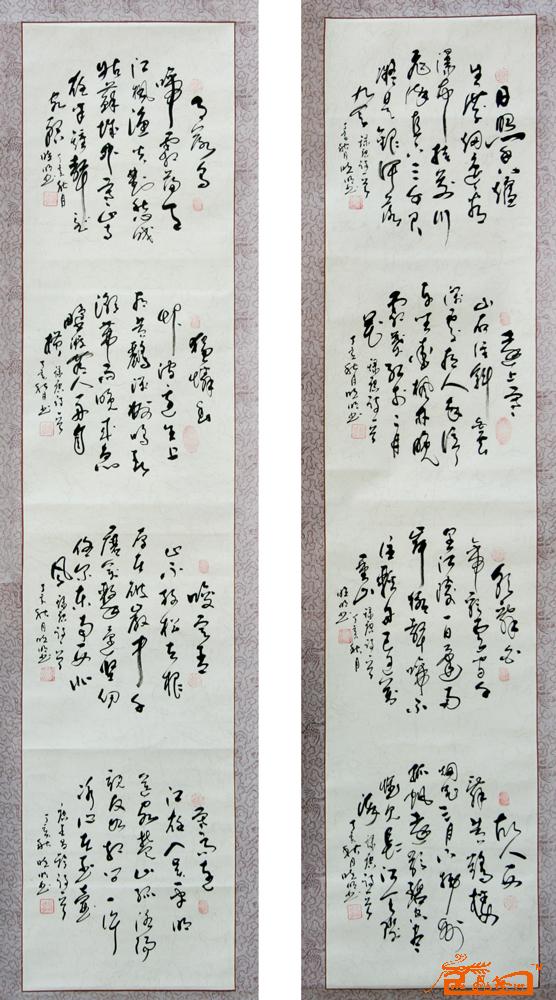 日照香炉
生紫烟遥看
瀑布挂前川
飞流直下三千尺
疑是银河落
九天
录唐诗一首
丁亥秋月晓明书
远上寒
山石径斜白云
深处有人家停
车坐爱枫林晚
霜叶红于二月
花
录唐诗一首
丁亥秋月晓明书
朝辞白
帝彩云间千
里江陵一日还两
岸猿声啼不
住轻舟已过万
重山
录唐诗一首
丁亥秋月
晓明书
故人西
辞黄鹤楼
烟花三月下扬州
孤帆远影碧空尽
惟见长江天际
流
录唐诗一首
丁亥秋月晓明书
月落乌
啼霜满天
江枫渔火对愁眠
姑苏城外寒山寺
夜半钟声到
客船
丁亥秋月
晓明书
独怜幽草
涧边生上
有黄鹂深树鸣春
潮带雨晚来急
野渡无人舟自
横
录唐诗一首
丁亥秋月晓明书
咬定青
山不放松立根
原在破岩中千
磨万击还坚劲
任尔东南西北
风
丁亥秋月晓明书
寒雨连
江夜入吴平明
送客楚山孤洛阳
亲友如相问一片
冰心在玉壶
丁亥秋晓明书